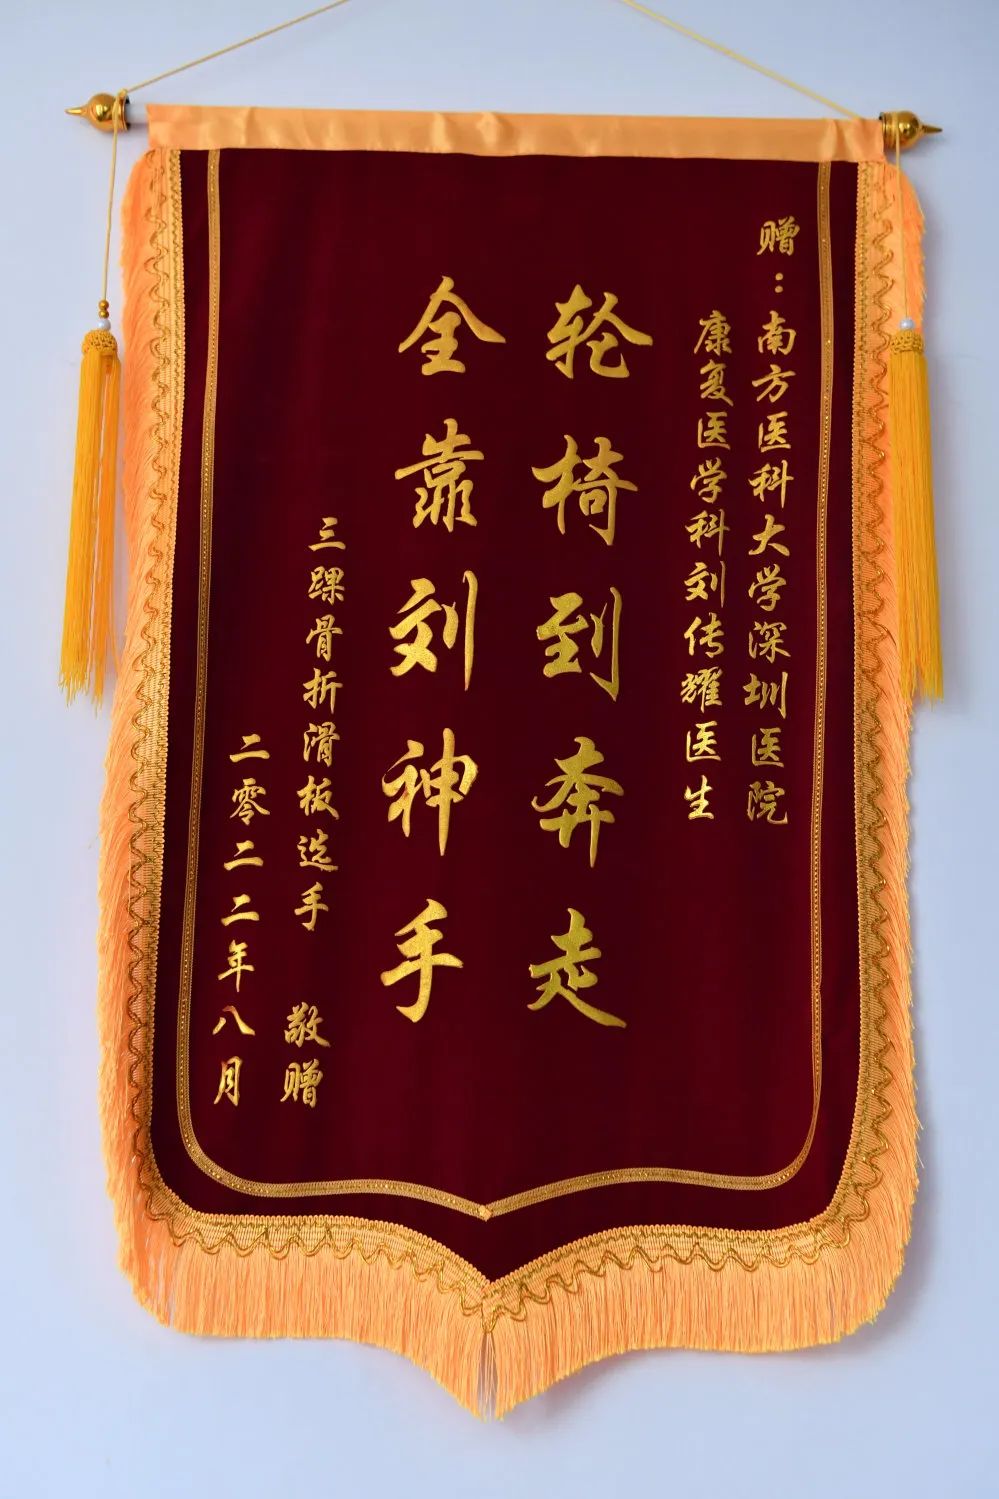 赠：南方医科大学深圳医院
康复医学科刘传耀医生
轮椅到奔走
全靠刘神手
三踝骨折滑板选手 敬赠
二零二二年八月